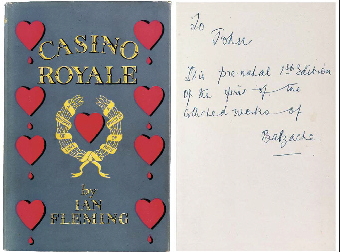 CASINO
ROYALE
by
IAN
FLEMING
To
This pre-natal 1st Edition
of the first of the
works of